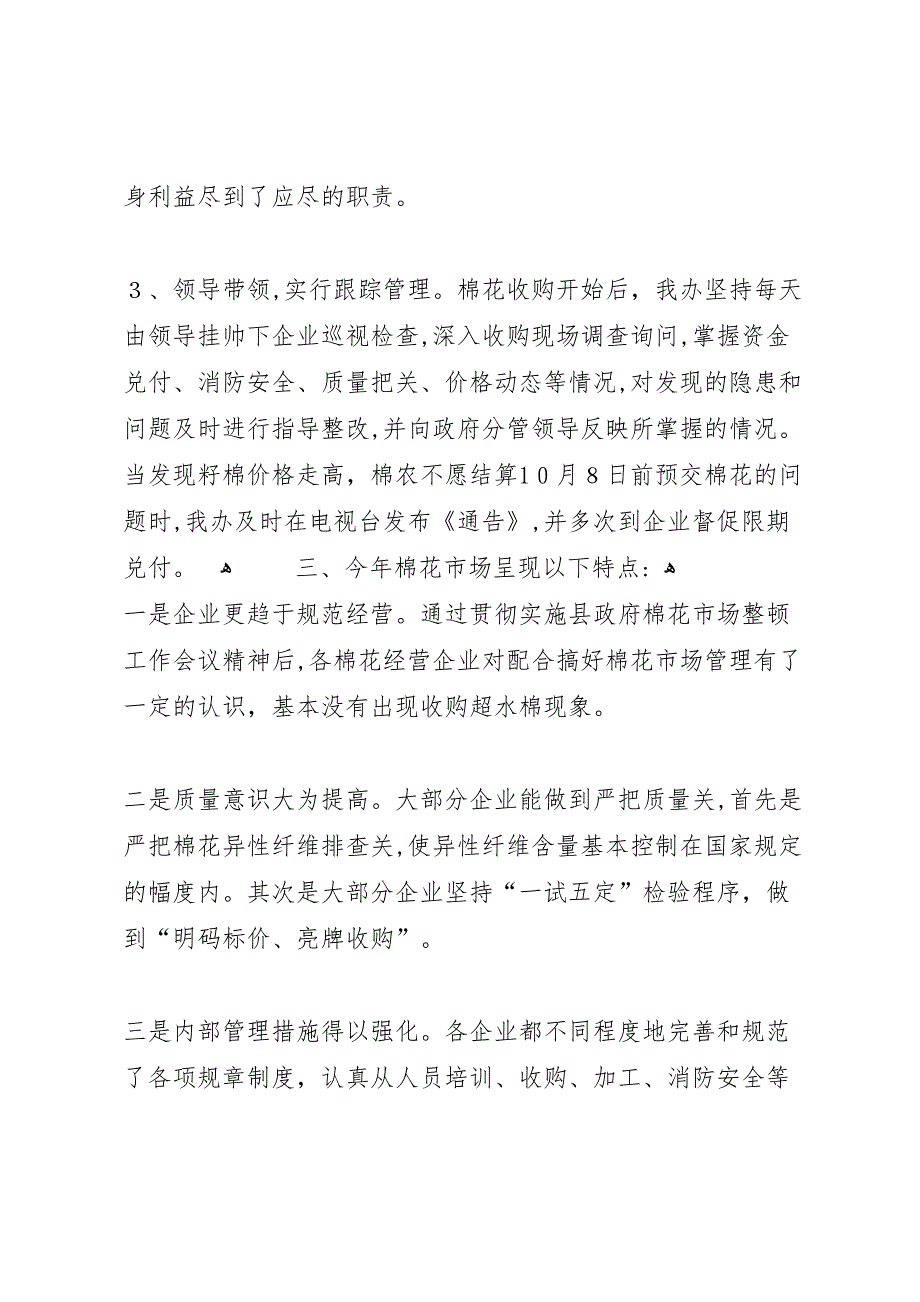 身利益尽到了应尽的职责。
３、领导带领,实行跟踪管理。棉花收购开始后，我办坚持每天
由领导挂帅下企业巡视检查,深入收购现场调查询问,掌握资金
兑付、消防安全、质量把关、价格动态等情况,对发现的隐患和
问题及时进行指导整改,并向政府分管领导反映所掌握的情况。
当发现籽棉价格走高，棉农不愿结算1０月８日前预交棉花的问
题时,我办及时在电视台发布《通告》,并多次到企业督促限期
兑付。 ﻫ 三、今年棉花市场呈现以下特点: ﻫ
一是企业更趋于规范经营。通过贯彻实施县政府棉花市场整顿
工作会议精神后,各棉花经营企业对配合搞好棉花市场管理有了
一定的认识，基本没有出现收购超水棉现象。
二是质量意识大为提高。大部分企业能做到严把质量关,首先是
严把棉花异性纤维排查关,使异性纤维含量基本控制在国家规定
的幅度内。其次是大部分企业坚持“一试五定”检验程序，做
到“明码标价、亮牌收购”。
三是内部管理措施得以强化。各企业都不同程度地完善和规范
了各项规章制度，认真从人员培训、收购、加工、消防安全等